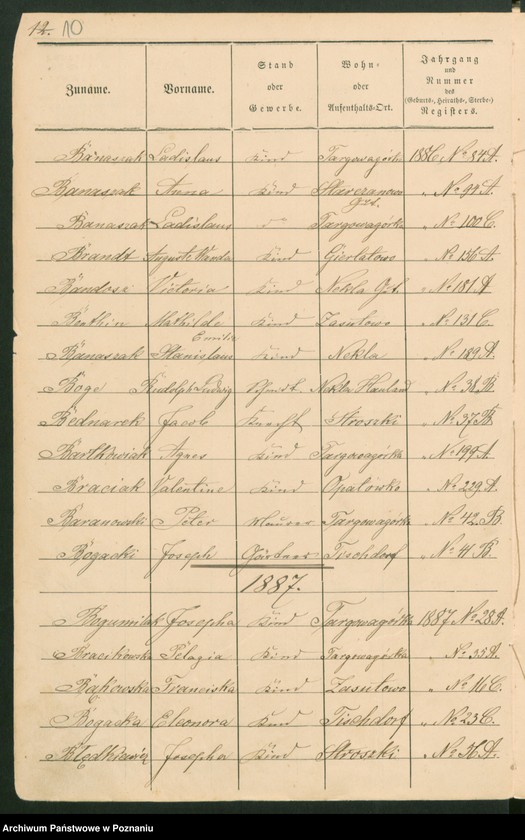 12. 10
Zuname. Vorname. Stand oder Gewerbe. Wohn- oder Aufenthalts-Ort. Jahrgang und Nummer des (Geburts-, Heiraths-, Sterbe-) Registers.
Banaszak Ladislaus Kind Targowagórka 1886 No 84 A.
Banaszak Anna Kind Gut. " No 99 A.
Banaszak Ladislaus Targowagórka " No 100 C.
Brandt Auguste Wanda Kind Gierlatowo " No 156 A.
Bandosz Victoria Kind Nekla Gut " No 181 A
Benthin Mathilde Emilie Kind Zasutowo " No 131 C.
Banaszak Stanislaus Kind Nekla " No 189 A.
Boge Rudolph Ludwig Schmidt Nekla Hauland " No 38 B.
Bednarek Jacob Knecht Stroszki " No 37 B.
Bartkowiak Agnes Kind Targowagórka " No 199 A.
Braciak Valentine Kind Opatowko " No 229 A.
Baranowski Peter Targowagórka " No 42 B.
Bogacki Joseph Gärtner Tischdorf " No 41 B.
1887.
Bogumilak Josepha Kind Targowagórka 1887 No 28 A.
Bracikowska Pelagia Kind Targowagórka " No 35 A.
Bąkowska Franciska Kind Zasutowo " No 16 C.
Bogacka Eleonora Kind Tischdorf " No 23 C.
Błędkiewicz Josepha Kind Stroszki " No 36 A.
Archiwum Państwowe w Poznaniu